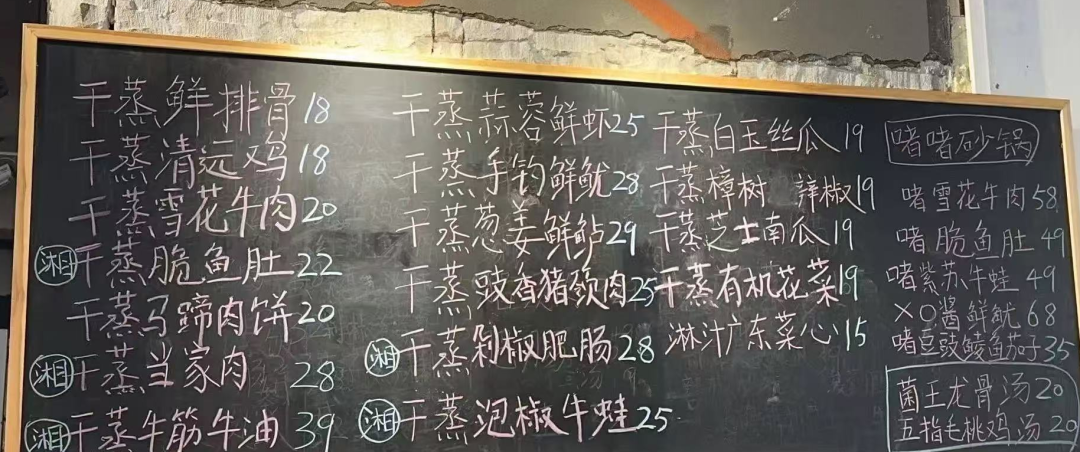 干蒸鲜排骨18
干蒸清远鸡18
干蒸雪花牛肉20
湘干蒸脆鱼肚22
干蒸马蹄肉饼20
湘干蒸当家肉 28
湘干蒸牛筋牛油39
干蒸蒜蓉鲜虾25
干蒸手钓鲜鱿28
干蒸葱姜鲜鲈29
干蒸豉香猪颈肉25
湘干蒸剁椒肥肠28
湘干蒸泡椒牛蛙25
干蒸白玉丝瓜19
干蒸樟树 辣椒19
干蒸芝士南瓜19
干蒸有机花菜19
淋汁广东菜心15
啫啫砂锅
啫雪花牛肉58
啫脆鱼肚49
啫紫苏牛蛙49
XO酱鲜鱿68
啫豆豉鲮鱼茄子35
菌王龙骨汤20
五指毛桃鸡汤20